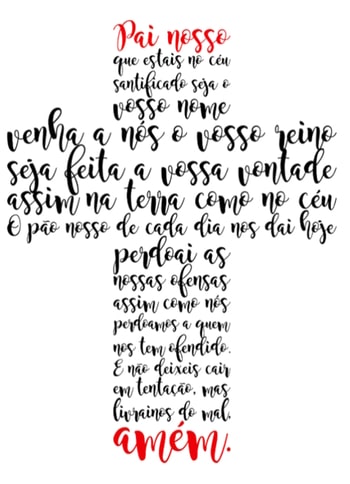 Pai nosso
que estais no céu
santificado seja o
vosso nome
venha a nós o vosso reino
seja feita a vossa vontade
assim na terra como no céu
O pão nosso de cada dia nos dai hoje
perdoai as
nossas ofensas
assim como nós
perdoamos a quem
nos tem ofendido.
E não deixeis cair
em tentação, mas
livrainos do mal.
amém.